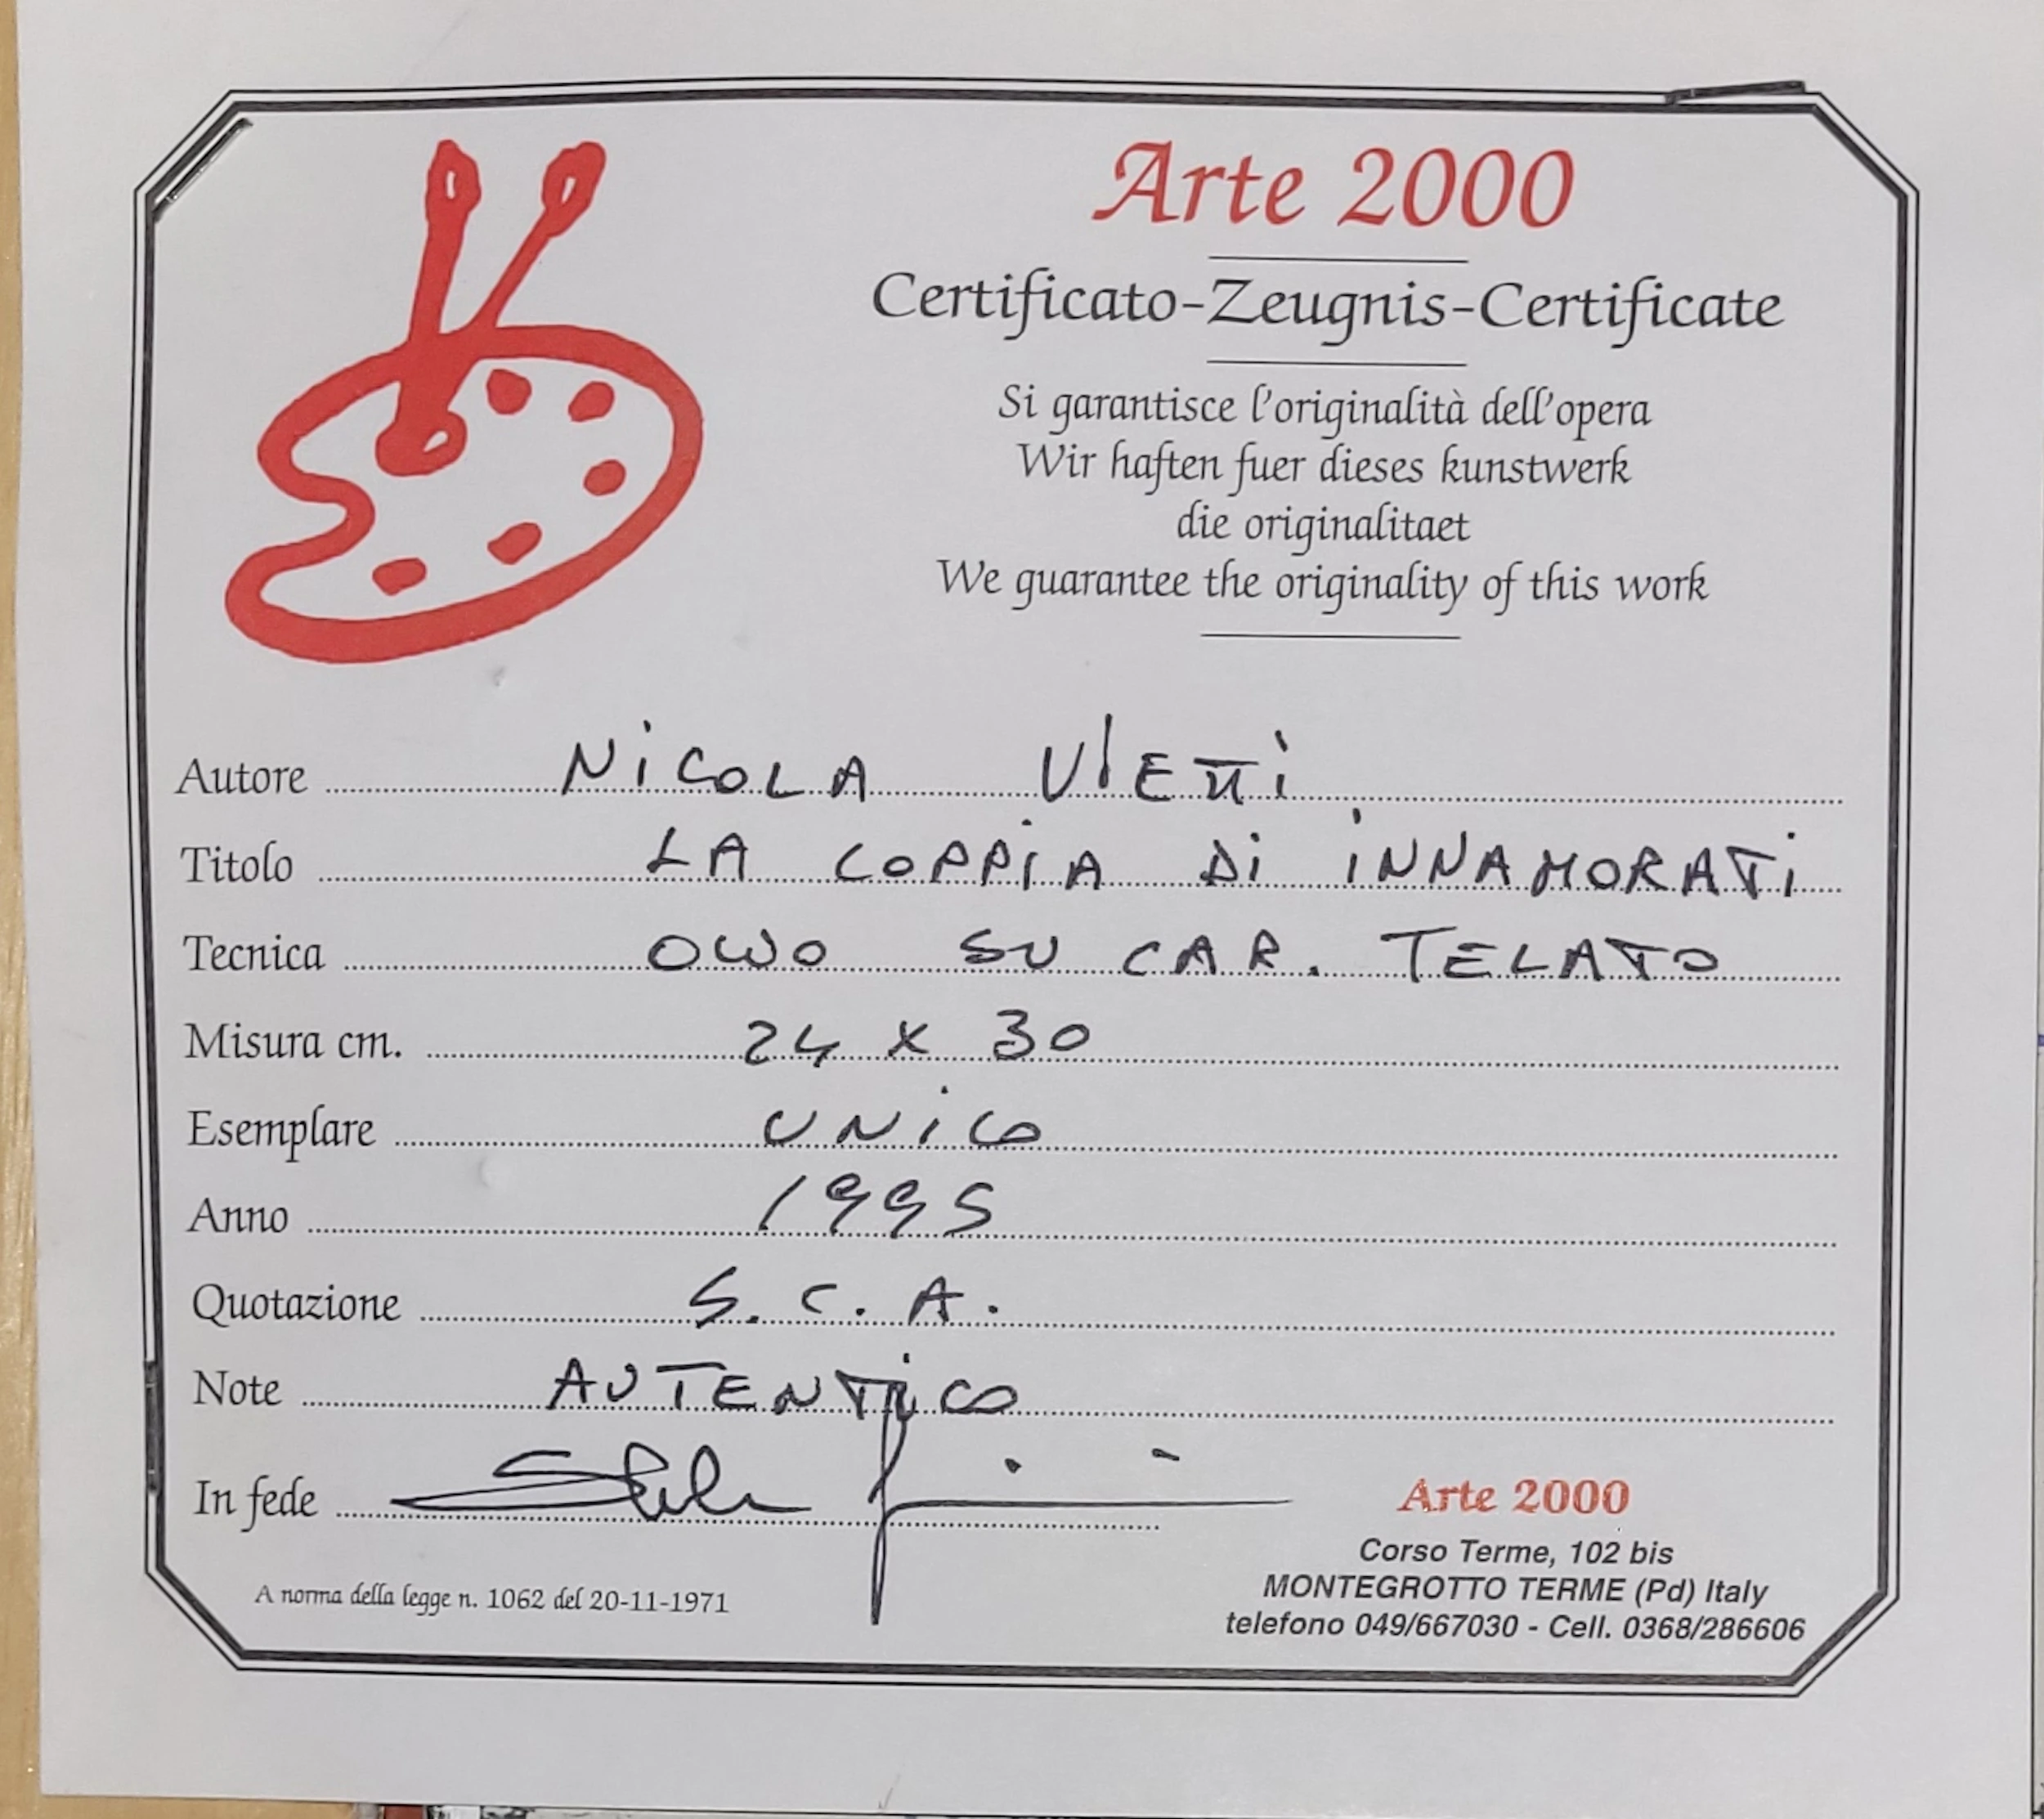 Arte 2000
Certificato-Zeugnis-Certificate
Si garantisce l'originalità dell'opera
Wir haften fuer dieses kunstwerk
die originalitaet
We guarantee the originality of this work
Autore NiCOLA
Titolo LA COPPiA Di iNNAMORATi
Tecnica OLIO SU CAR. TELATO
Misura cm. 24 x 30
Esemplare UNiCO
Anno 1995
Quotazione S.C.A.
Note AUTENTiCO
In fede
A norma della legge n. 1062 del 20-11-1971
Arte 2000
Corso Terme, 102 bis
MONTEGROTTO TERME (Pd) Italy
telefono 049/667030 - Cell. 0368/286606